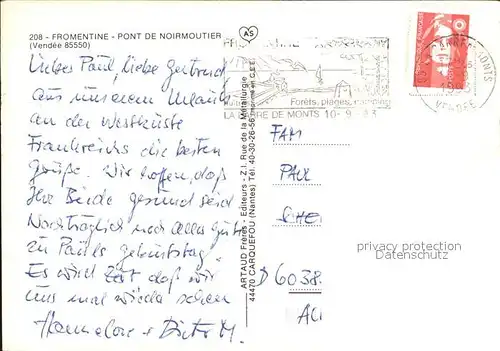 208 - FROMENTINE - PONT DE NOIRMOUTIER
(Vendée 85550)
AS
Liebes Paul, liebe Gertrud
aus unserem Urlaub
an der Westküste
Frankreichs die besten
Grüße. Wir hoffen, daß
Ihr Beide gesund seid
Nachträglich noch alles Gute
zu Pauls Geburtstag
Es wird Zeit daß wir
uns mal wieder sehen
Hannelore + Dieter M.
ARTAUD Frères - Editeurs - Z.I. Rue de la Métallurgie
44470 CARQUEFOU (Nantes) Tél. 40-30-26-56
Forêts, plages,
LA BARRE DE MONTS 10-9-
VENDEE
FAM
PAUL
privacy protection
Datenschutz
D 6038